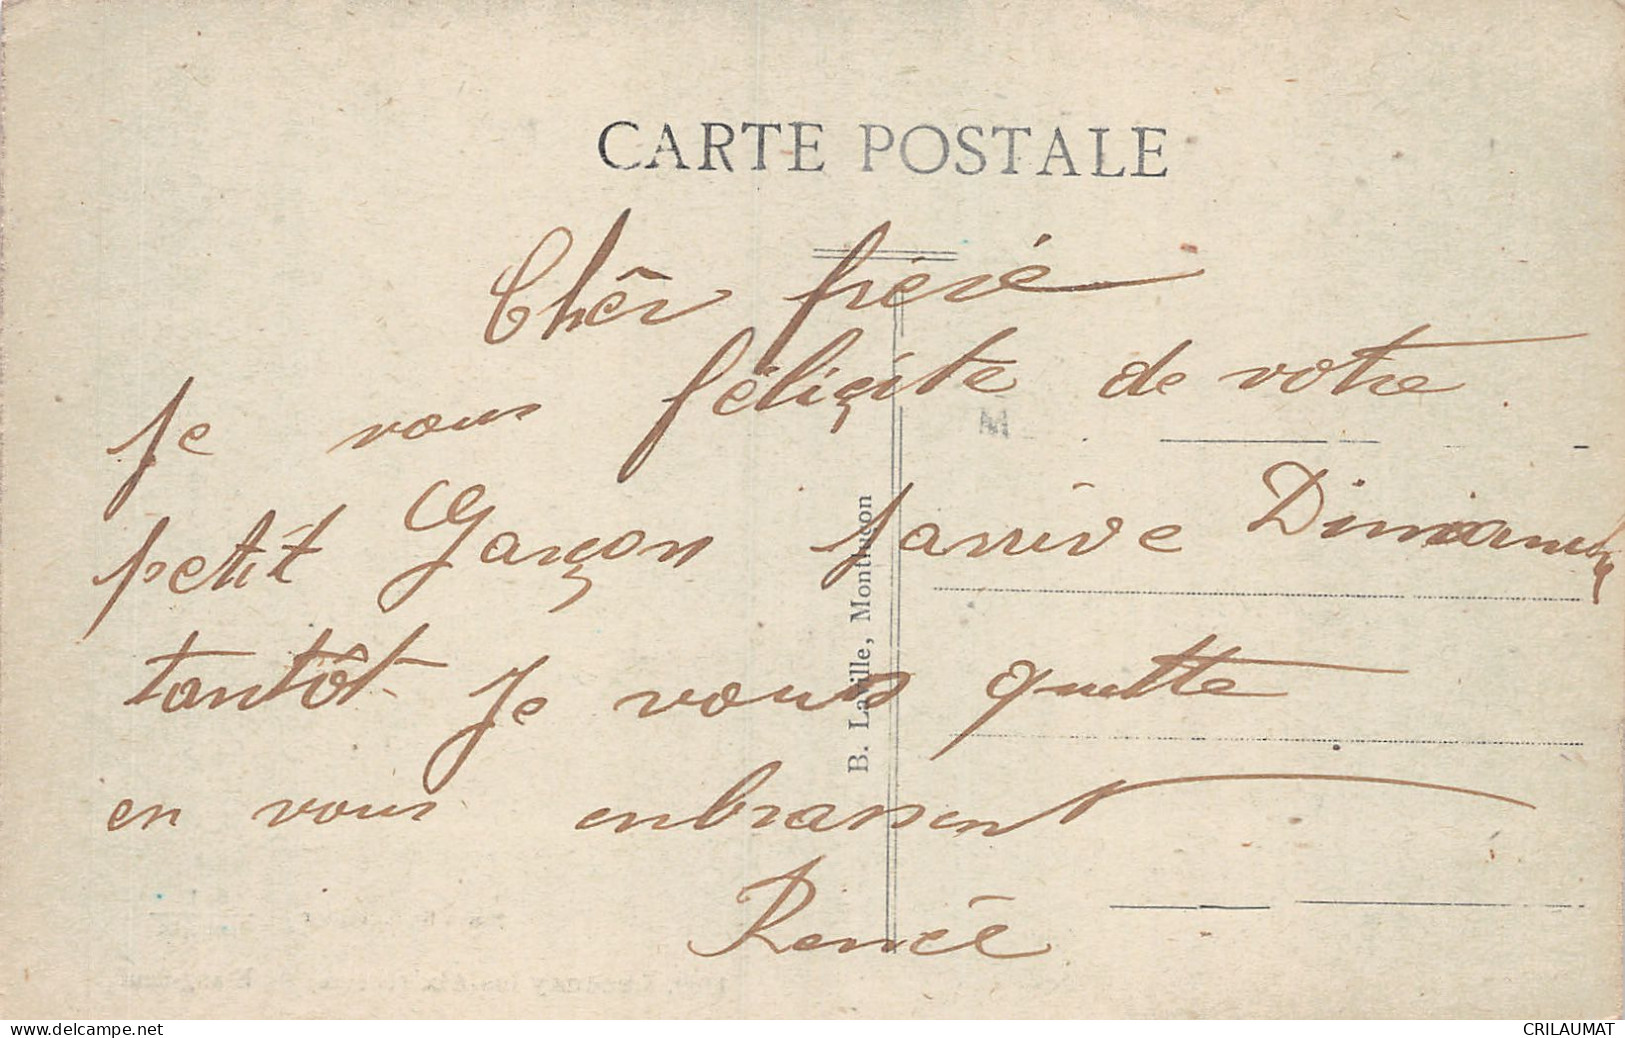 CARTE POSTALE
Chêr fréré
Je vous féliçite de votre
petit Garçon J'arrive Dimanche
tantôt Je vous quitte
en vous enbrassent
Renée
B. Laville, Montluçon
www.delcampe.net
CRILAUMAT